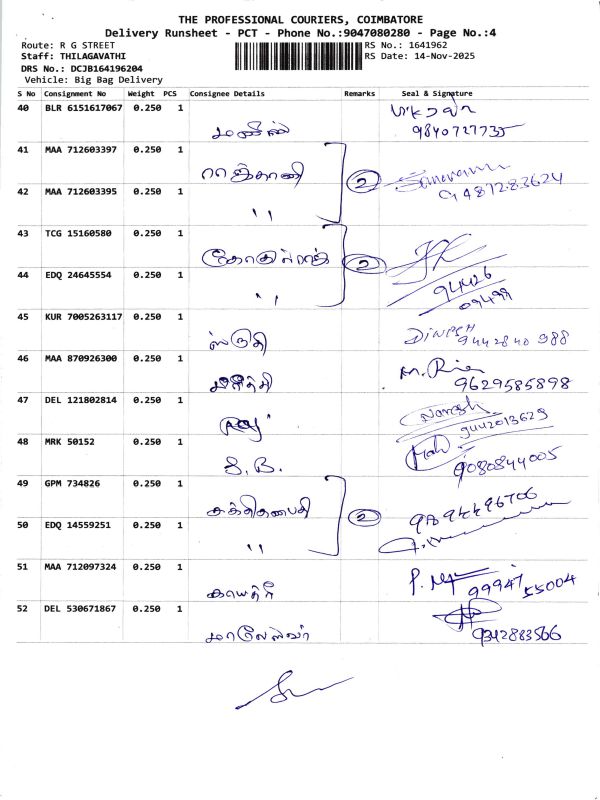 THE PROFESSIONAL COURIERS, COIMBATORE
Delivery Runsheet - PCT - Phone No.:9047080280 - Page No.:4
Route: R G STREET
RS No.: 1641962
Staff: THILAGAVATHI
RS Date: 14-Nov-2025
DRS No.: DCJB164196204
Vehicle: Big Bag Delivery
S No Consignment No Weight PCS Consignee Details Remarks Seal & Signature
40 BLR 6151617067 0.250 1
9840727735
41 MAA 712603397 0.250 1
2
9487283624
42 MAA 712603395 0.250 1
"
43 TCG 15160580 0.250 1
2
44 EDQ 24645554 0.250 1
"
94426
09499
45 KUR 7005263117 0.250 1
ஸ்ருதி
DINESH
9442840988
46 MAA 870926300 0.250 1
9629585898
47 DEL 121802814 0.250 1
Naresh
9442013629
48 MRK 50152 0.250 1
S.B.
9080844005
49 GPM 734826 0.250 1
சக்திகணபதி
2
9894496706
50 EDQ 14559251 0.250 1
"
51 MAA 712097324 0.250 1
காயத்ரி
99947 55004
52 DEL 530671867 0.250 1
9342883566